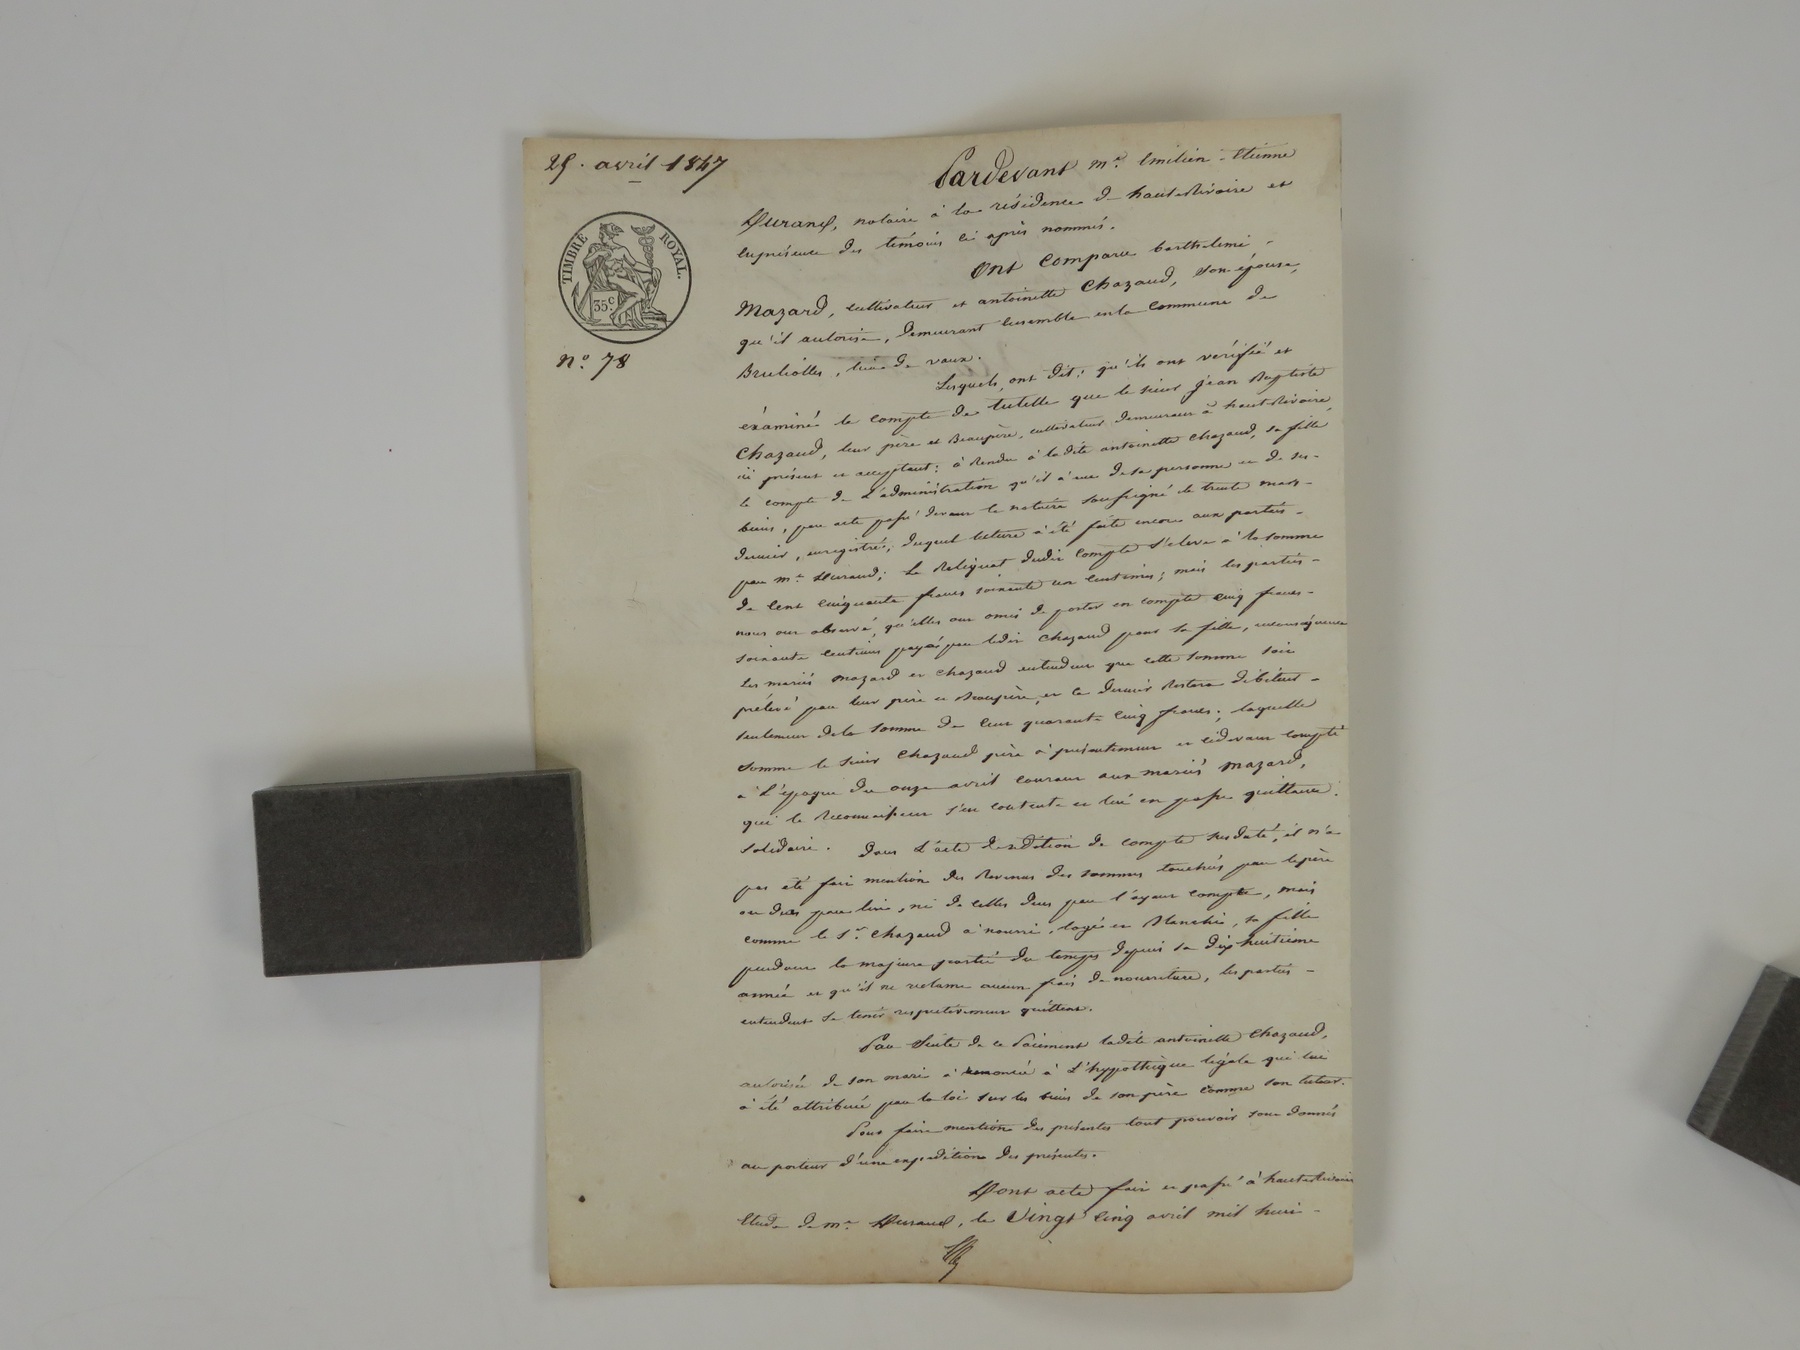 25. avril 1847
TIMBRE ROYAL.
35 c.
N.º 78
Pardevant Mᵉ. Emilien-Etienne
Durand, notaire à la résidence de haute Rivoire et
en présence des témoins ci après nommés.
Ont comparu barthelemi
Mazard, cultivateur et antoinette Chazaud, son épouse,
qu'il autorise, demeurant ensemble en la Commune de
Brulliolles, lieu de vaux.
Lesquels, ont dit: qu'ils ont vérifié et
éxaminé le compte de tutelle que le sieur Jean Baptiste
Chazaud, leur père et Beaupère, cultivateur demeurant à haute Rivoire,
ici présent et acceptant: à Rendu à ladite antoinette Chazaud, sa fille
le compte de L'administration qu'il à eue de sa personne et de ses
biens, par acte passé devant le notaire soussigné le trente mars
dernier, enregistré; duquel lecture à été faite encore aux parties
par Mᵉ Durand; Le Reliquat dudit Compte s'eleve à la somme
de Cent Cinquante francs soixante un Centimes; mais les parties
nous ont observé, qu'elles ont omis de porter en compte cinq francs
soixante Centimes payés par ledit Chazaud pour sa fille, en conséquence
Les mariés Mazard et Chazaud entendent que cette somme soit
prélevé par leur père et Beaupère, et ce dernier Restera débiteur
seulement de la somme de Cent quarante Cinq francs; laquelle
somme le sieur Chazaud père à présentement et cidevant compté
a L'époque du onze avril courant aux mariés Mazard,
qui le Reconnaissent s'en contente et lui en passe quittance
solidaire. Dans L'acte de reddition de compte susdaté, il n'a
pas été fait mention des Revenus des sommes touchées par le père
ou dues par lui, ni de celles dues par l'ayant compte, mais
comme le Sʳ. Chazaud a nourri, logé et Blanchi, sa fille
pendant la majeure partie du temps depuis sa dix huitieme
année et qu'il ne reclame aucun frais de nourriture, les parties
entendent se tenir respectivement quittent.
Par Suite de ce Paiement ladite antoinette Chazaud,
autorisée de son mari à renoncée à L'hyppothèque légale qui lui
à été attribuée par la loi sur les biens de son père comme son tuteur.
Pour faire mention des présentes tout pouvoir sont donnés
au porteur d'une expedition des présentes.
Dont acte, fait et passé à haute Rivoire
Etude de mᵉ Durand, le Vingt Cinq avril mil huit